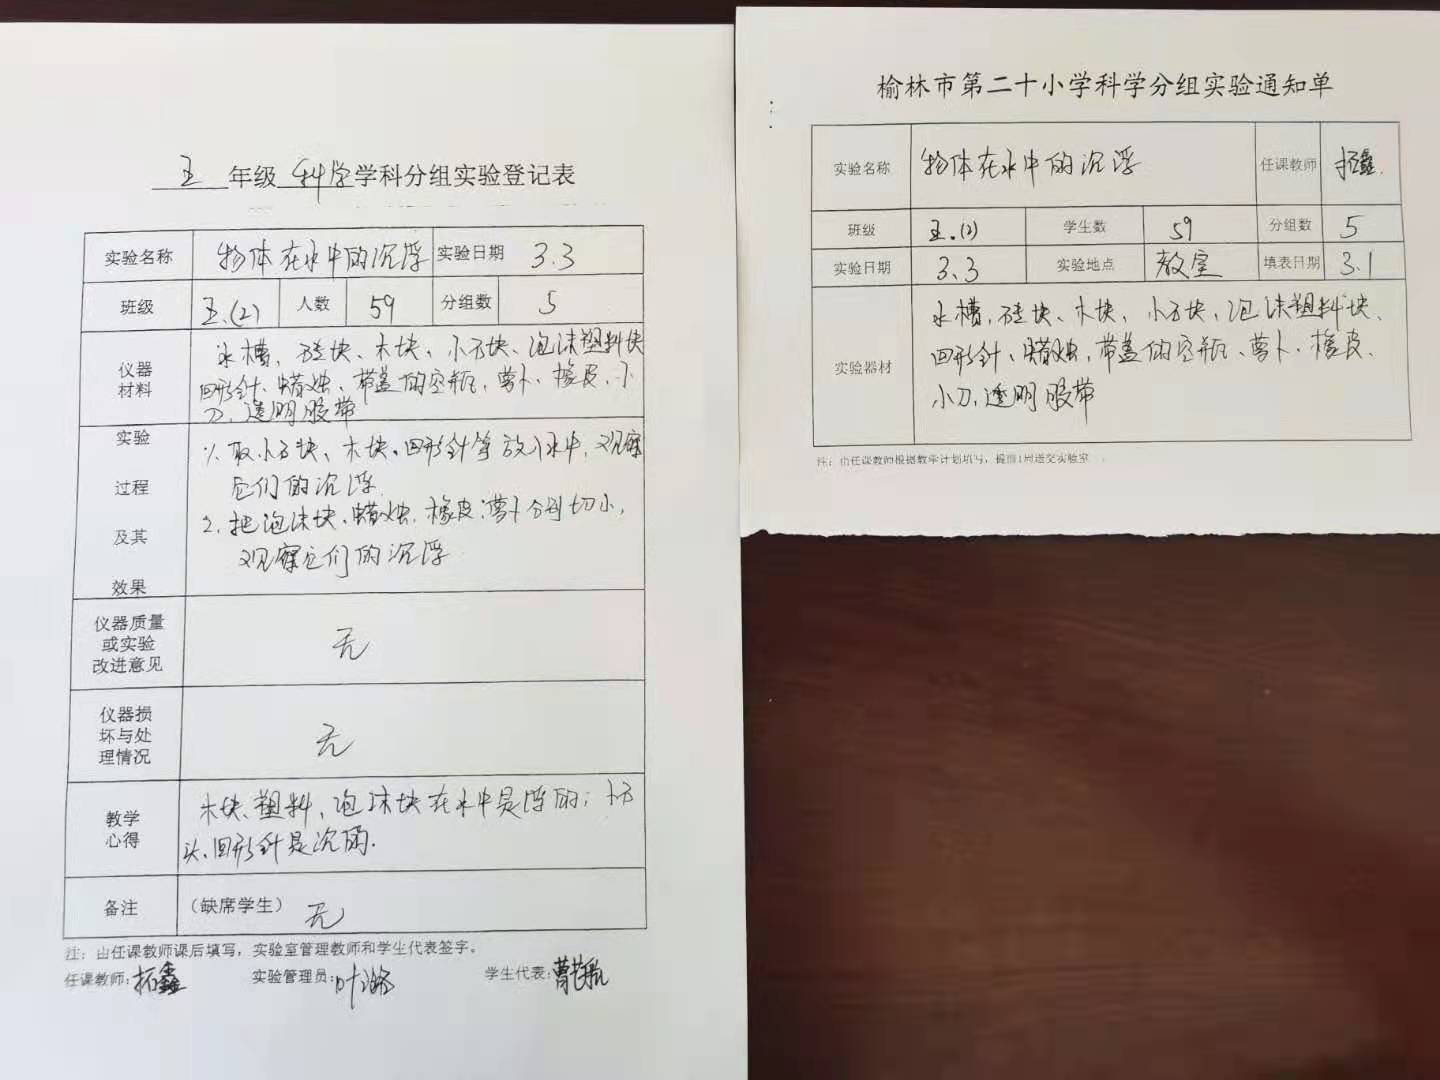 五 年级 科学 学科分组实验登记表
实验名称 物体在水中的沉浮 实验日期 3.3
班级 五.(2) 人数 59 分组数 5
仪器材料 水槽、砖块、木块、小石块、泡沫塑料块
回形针、蜡烛、带盖的空瓶、萝卜、橡皮、小
刀、透明胶带
实验过程及其效果 1、取小石块、木块、回形针等放入水中,观察
它们的沉浮
2、把泡沫块、蜡烛、橡皮、萝卜分别切小,
观察它们的沉浮
仪器质量或实验改进意见 无
仪器损坏与处理情况 无
教学心得 木块、塑料、泡沫块在水中是浮的;小石
头、回形针是沉的.
备注 (缺席学生) 无
注:由任课教师课后填写,实验室管理教师和学生代表签字。
任课教师:拓鑫 实验管理员:叶 学生代表:曹
榆林市第二十小学科学分组实验通知单
实验名称 物体在水中的沉浮 任课教师 拓鑫.
班级 五.(2) 学生数 59 分组数 5
实验日期 3.3 实验地点 教室 填表日期 3.1
实验器材 水槽、砖块、木块、小石块、泡沫塑料块、
回形针、蜡烛、带盖的空瓶、萝卜、橡皮、
小刀、透明胶带
注:由任课教师根据教学计划填写,提前1周送交实验室